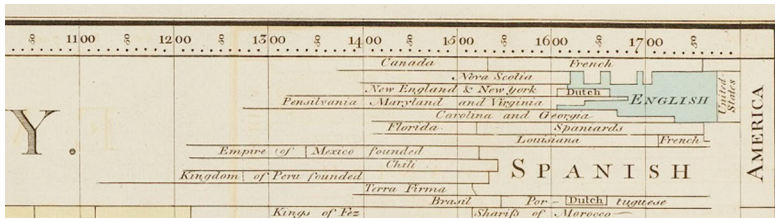 50 1100 50 1200 50 1300 50 1400 50 1500 50 1600 50 1700 50
Canada French
Nova Scotia
New England & New York Dutch
Pensilvania Maryland and Virginia ENGLISH United States
Carolina and Georgia
Florida Spaniards
Louisiana French
Empire of Mexico founded
Chili SPANISH
Kingdom of Peru founded
Terra Firma
Brasil Por- Dutch tuguese
Kings of Fez Sharifs of Morocco
Y.
AMERICA